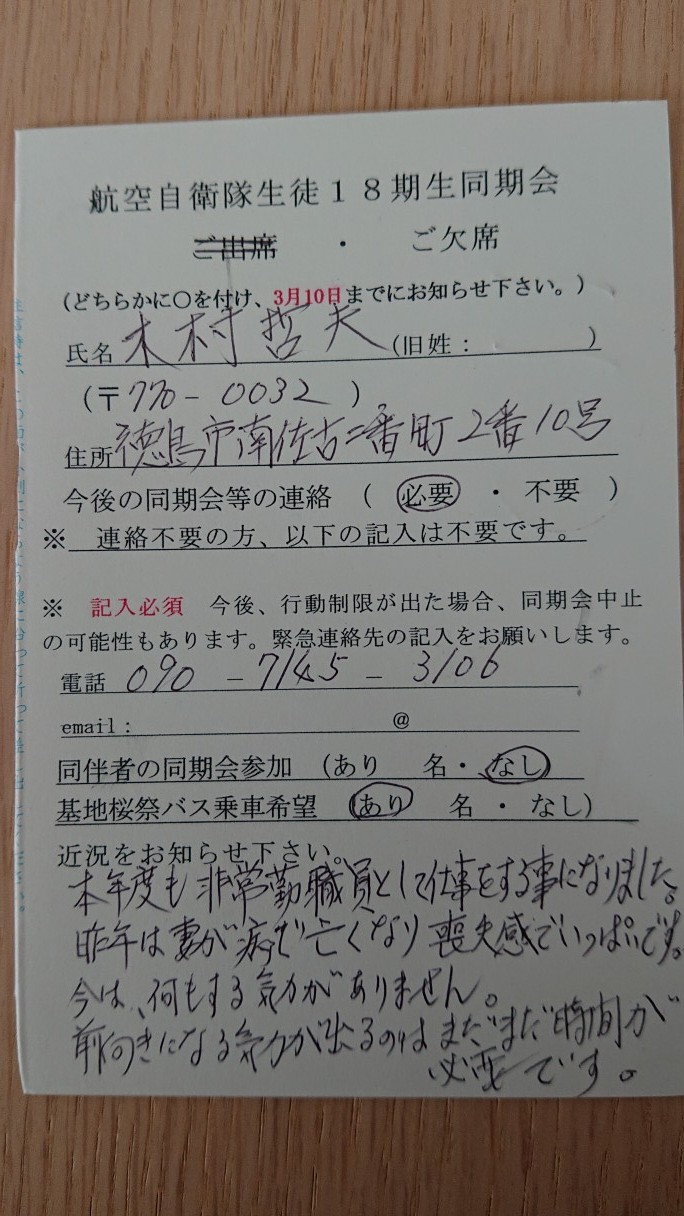 航空自衛隊生徒18期生同期会
ご出席 ・ ご欠席
(どちらかに○を付け、3月10日までにお知らせ下さい。)
氏名 木村哲夫 (旧姓: )
(〒770-0032 )
住所 徳島市南佐古二番町2番10号
今後の同期会等の連絡 ( 必要 ・ 不要 )
※ 連絡不要の方、以下の記入は不要です。
※ 記入必須 今後、行動制限が出た場合、同期会中止
の可能性もあります。緊急連絡先の記入をお願いします。
電話 090-7145-3106
email: @
同伴者の同期会参加 (あり 名・ なし)
基地桜祭バス乗車希望 (あり 名 ・ なし)
近況をお知らせ下さい。
本年度も非常勤職員として仕事をする事になりました。
昨年は妻が病で亡くなり喪失感でいっぱいです。
今は、何もする気力がありません。
前向きになる気力が出るのはまだまだ時間が
必要です。